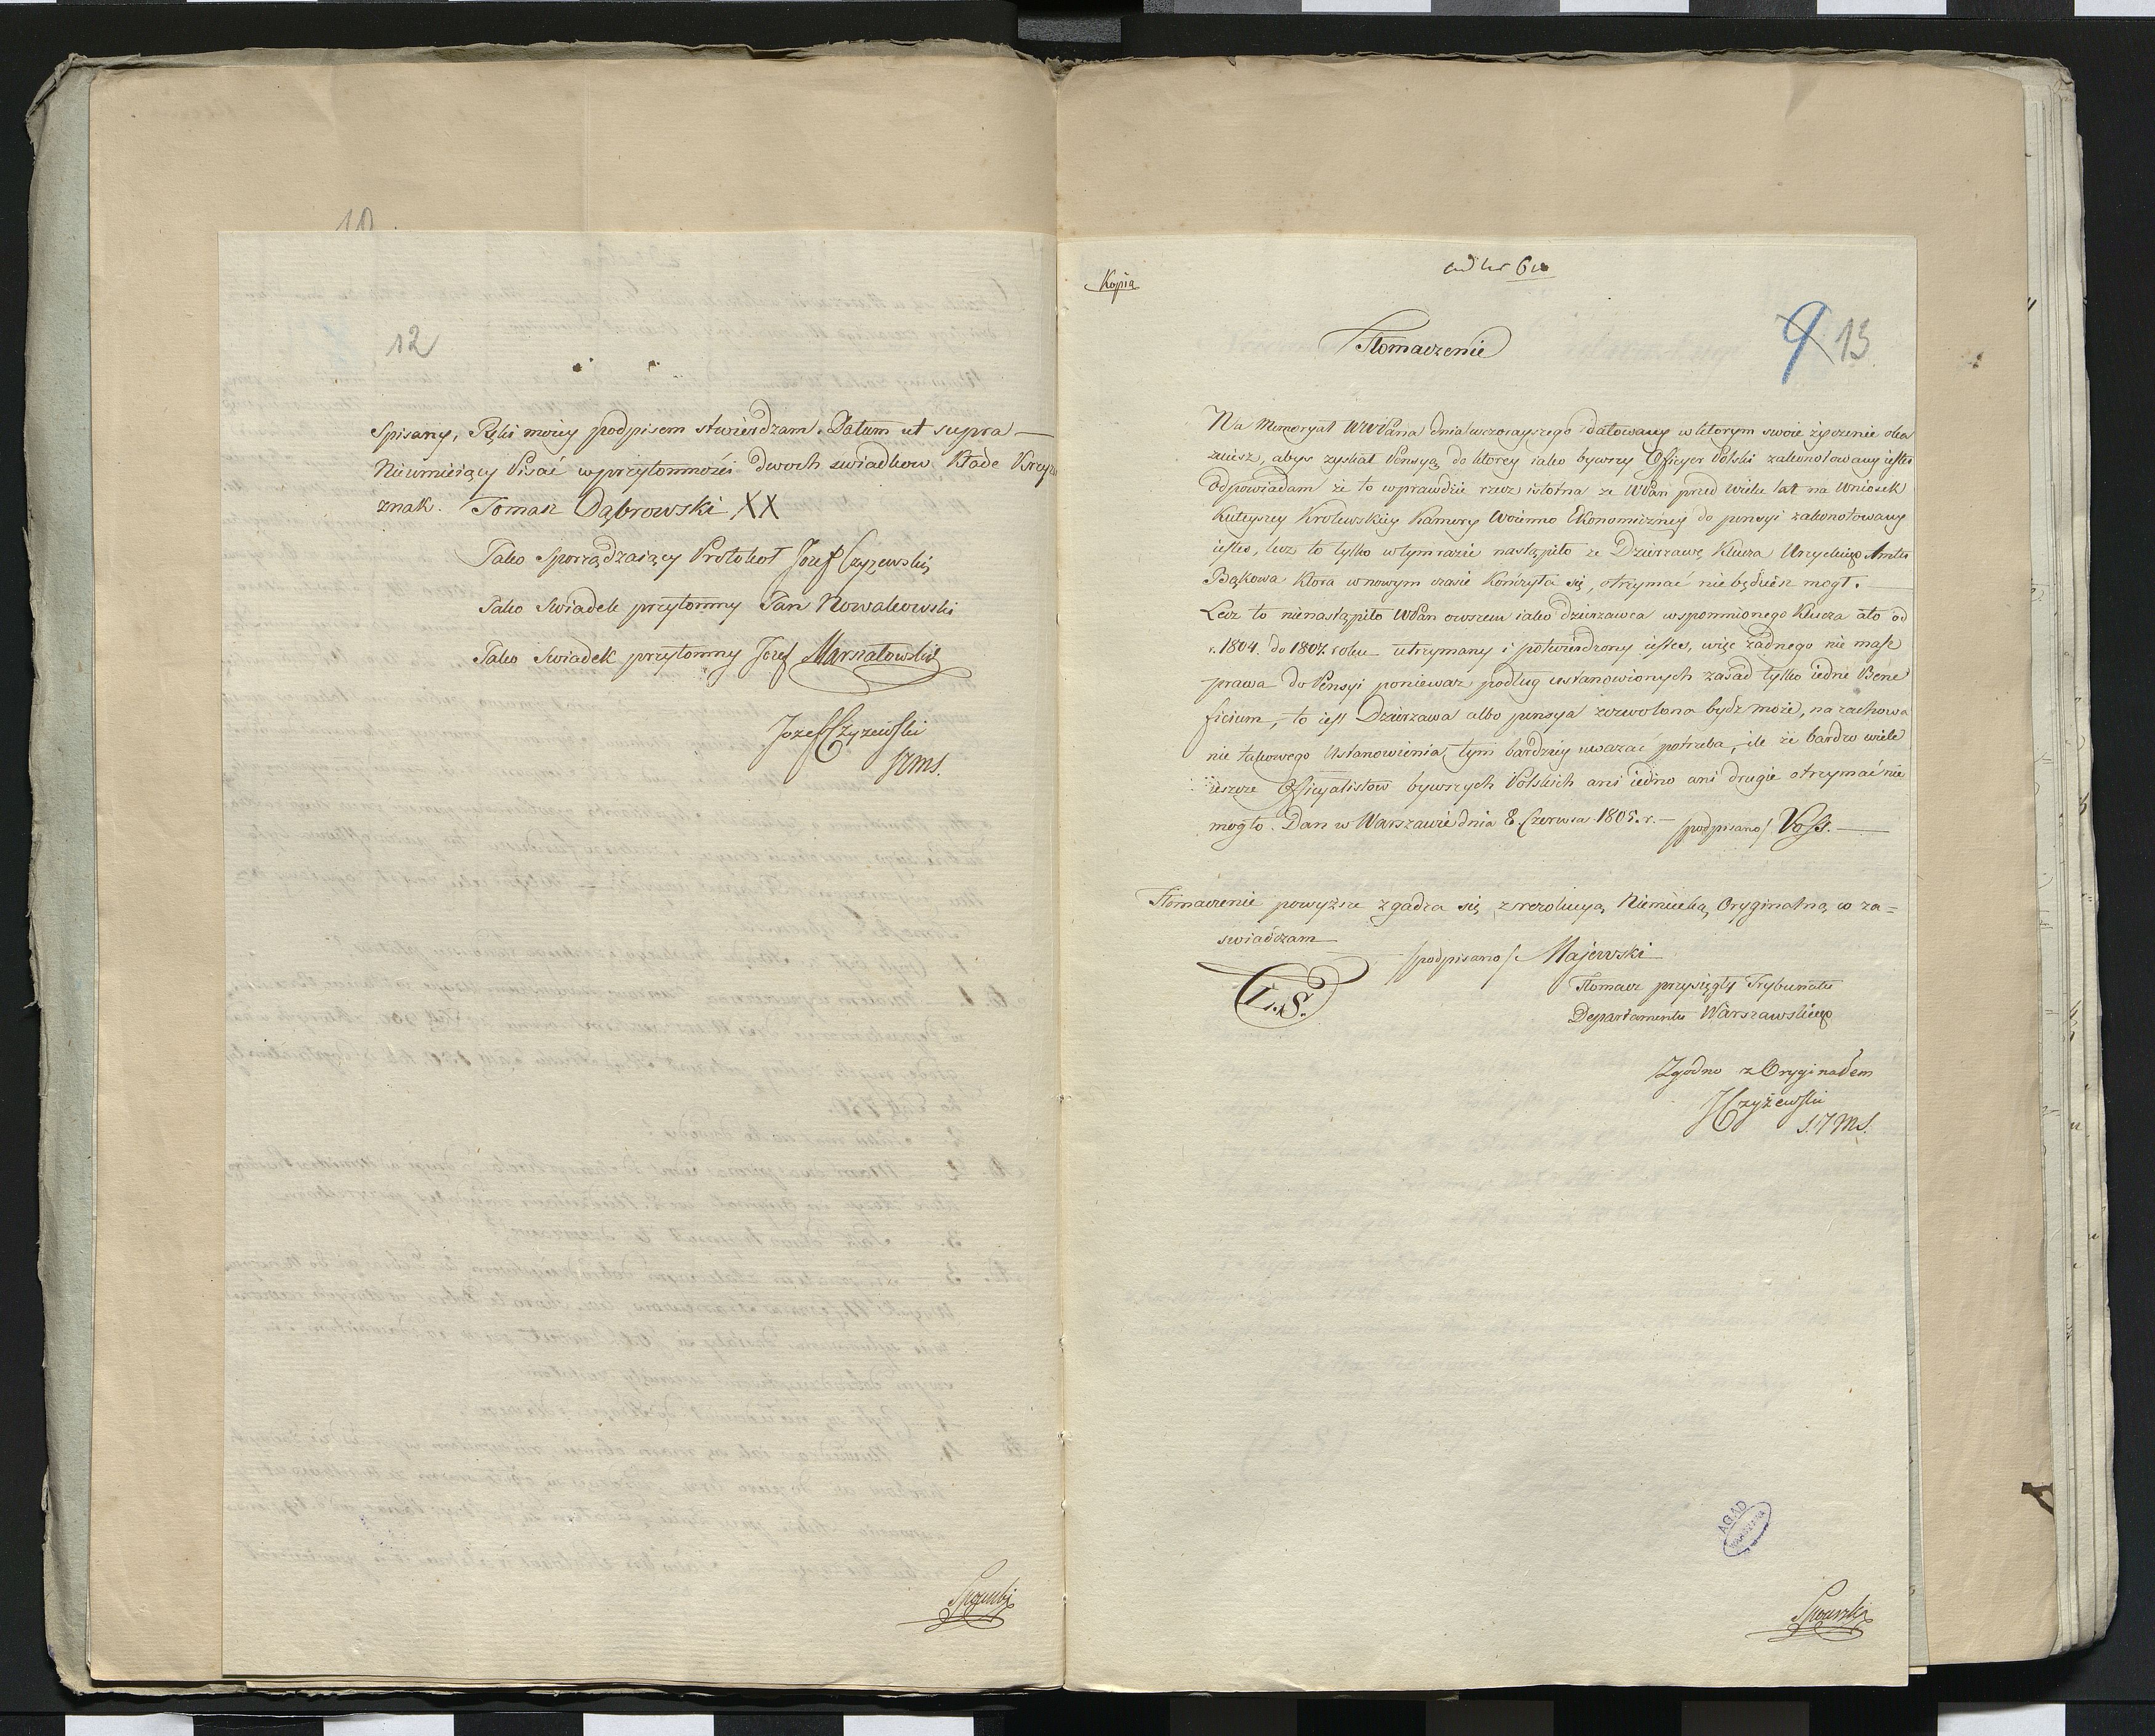 10
12
Spisany, Ręki moiey podpisem stwierdzam. Datum ut supra —
Nieumieiący Pisać w przytomności dwoch swiadkow Kłade Krzyż
znak. Tomasz Dąbrowski XX
Jako Sporządzaiący Protokoł Jozef Czyzewski
Jako Swiadek przytomny Jan Nowakowski
Jako Swiadek przytomny Jozef Marszałowski
Jozef Czyżewski
Kopia
ad Nr 6
Tłomaczenie
9 13
Na Memoryał WWPana dnia wczorayszego datowany w ktorym swoie życzenie oka
zuiesz, abyś zyskał Pensyą, do ktorey iako bywszy Officyer Polski zakonotowany iesteś
Odpowiadam że to wprawdzie rzecz istotna że WPan przed wielu lat na Wniosek
tuteyszey Krolewskiey Kamery Woienno Ekonomiczney do pensyi zakonotowany
iesteś, lecz to tylko w tym razie nastąpiło że Dzierzawę Klucza Urzyckiego Amtu
Bąkowa ktora w nowym czasie kończyła się, otrzymać nie będziesz mogł. —
Lecz to nienastąpiło WPan owszem iako dzierzawca wspomnionego Klucza ato od
r. 1804. do 1807. roku utrzymany i potwierdzony iesteś, więc żadnego nie masz
prawa do Pensyi poniewaz podług ustanowionych zasad tylko iedne Bene
ficium, to iest Dzierzawa albo pensya zozwolona bydz może, na zachowa
nie takowego Ustanowienia, tym bardziey uwazać potrzeba, ile że bardzo wiele
ieszcze Officyalistow bywszych Polskich ani iedno ani drugie otrzymać nie
mogło. Dan w Warszawie dnia 8. Czerwca 1805. r. — /podpisano/ Voss. —
Tłomaczenie powyższe zgadza się z rezolucyą Niemiecką Oryginalną, co za=
swiadczam
/podpisano/: Majewski
L.S.
Tłomacz przysięgły Trybunału
Departamentu Warszawskiego
Zgodno z Oryginałem
JCzyżewski
AGAD
WARSZAWA